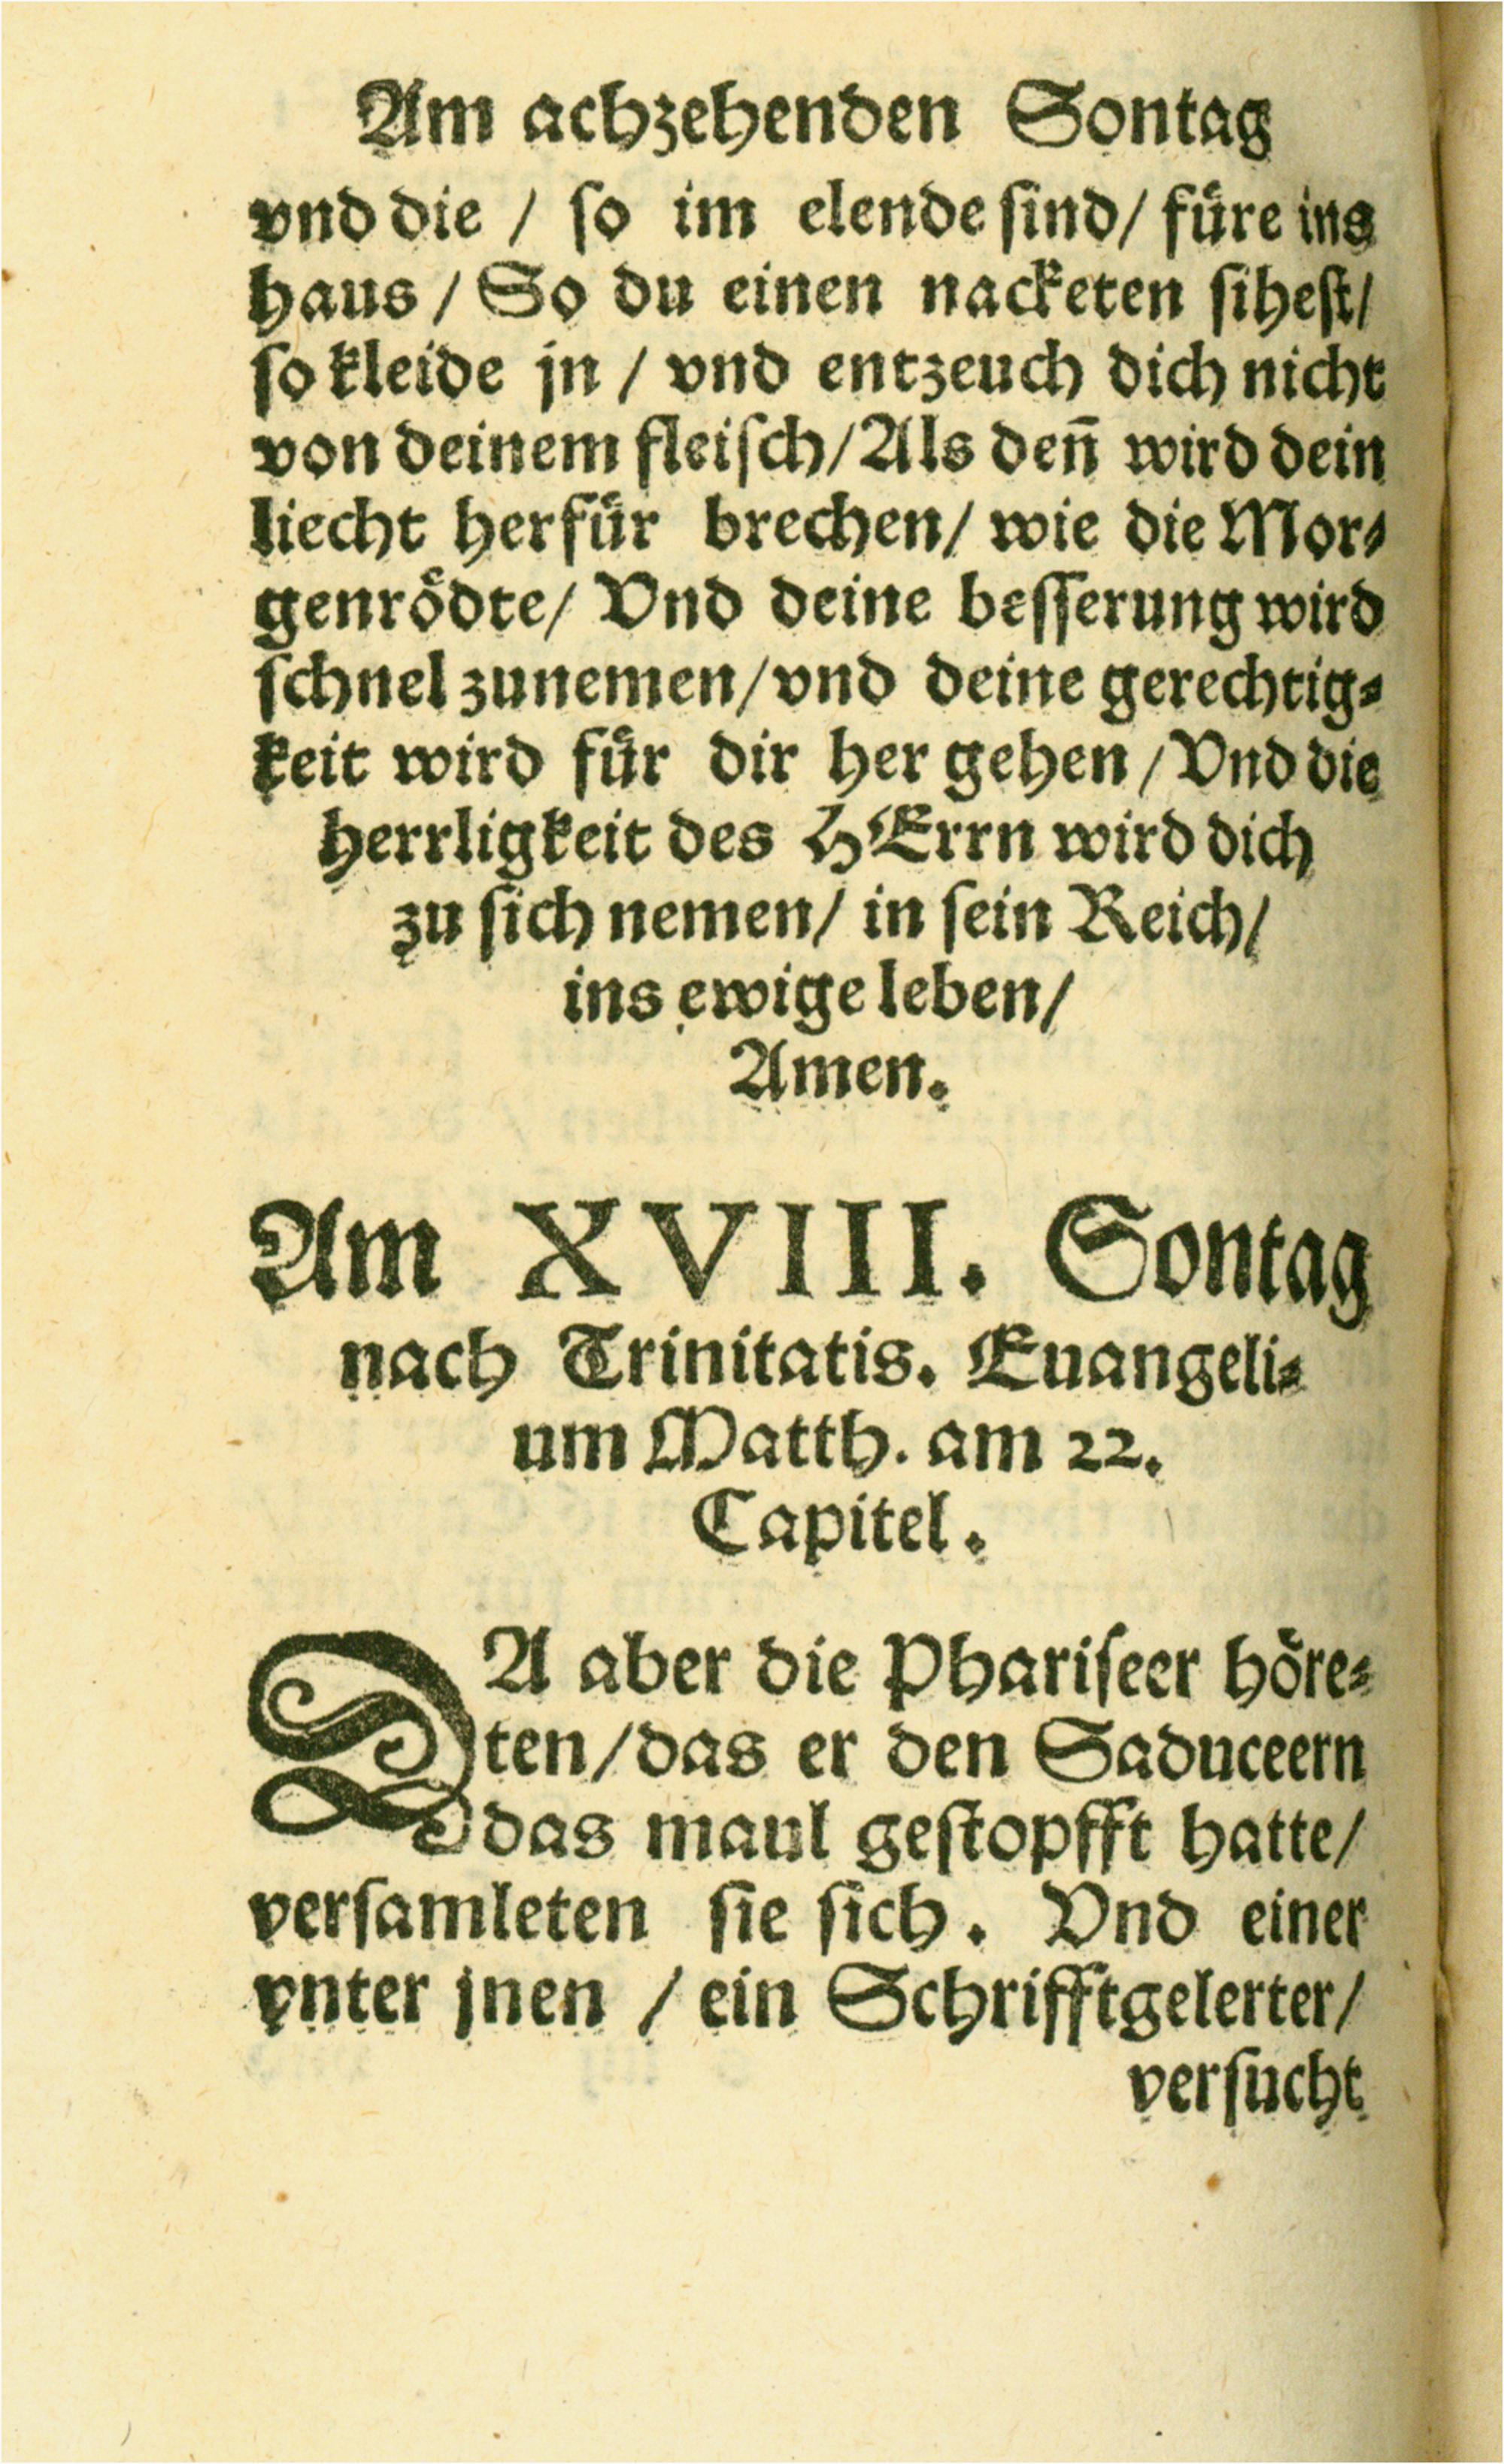 Am achzehenden Sontag
vnd die / ſo im elende ſind/ fuͤre ins
haus / So du einen nacketen ſiheſt/
ſo kleide jn / vnd entzeuch dich nicht
von deinem fleiſch/ Als deñ wird dein
liecht herfuͤr brechen/ wie die Mor⸗
genroͤdte/ Vnd deine beſſerung wird
ſchnel zunemen/ vnd deine gerechtig⸗
keit wird fuͤr dir her gehen / Vnd die
herrligkeit des HErrn wird dich
zu ſich nemen/ in ſein Reich/
ins ewige leben/
Amen.
Am XVIII. Sontag
nach Trinitatis. Euangeli⸗
um Matth. am 22.
Capitel.
DA aber die Phariſeer hoͤre⸗
ten/ das er den Saduceern
das maul geſtopfft hatte/
verſamleten ſie ſich. Vnd einer
vnter jnen / ein Schrifftgelerter/
verſucht